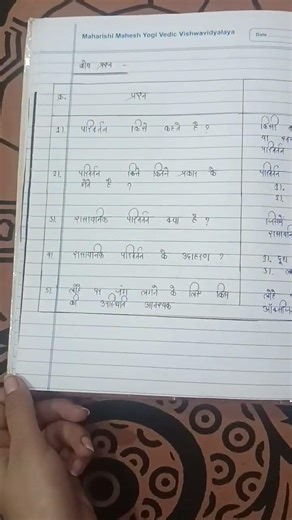 Maharishi Mahesh Yogi Vedic Vishwavidyalaya
Date
बोध प्रश्न -
क्र. प्रश्न
1. परिवर्तन किसे कहते है ? किसी
परिवर्तन
2. परिवर्तन कितने प्रकार के परिवर्तन
होते है ? 1.
2.
3. रासायनिक परिवर्तन क्या है ? जिसमें
रासायनि
4. रासायनिक परिवर्तन के उदाहरण ? 1. दूध
3.
5. लोहे पर जंग लगने के लिए किस लोहे
की उपस्थिति आवश्यक